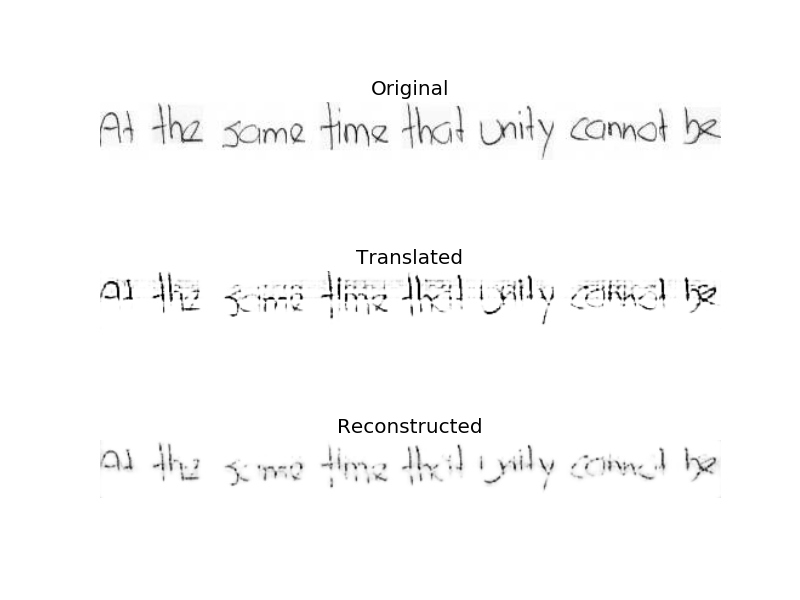 Original
At the same time that unity cannot be
Translated
At the same time that unity cannot be
Reconstructed
At the same time that unity cannot be